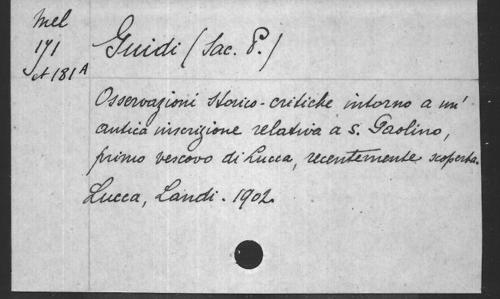 Mel
171
et 181A
Guidi (Sac. P.)
Osservazioni storico-critiche intorno a un'
antica inscrizione relativa a S. Paolino,
primo vescovo di Lucca, recentemente scoperta.
Lucca, Landi. 1902.